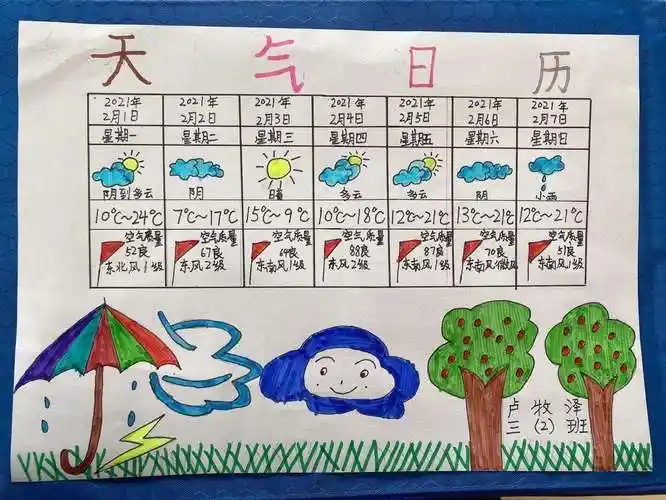 天 气 日 历
2021年 2021年 2021年 2021年 2021年 2021年 2021年
2月1日 2月2日 2月3日 2月4日 2月5日 2月6日 2月7日
星期一 星期二 星期三 星期四 星期五 星期六 星期日
阴到多云 阴 晴 多云 多云 阴 小雨
10℃~24℃ 7℃~17℃ 15℃~9℃ 10℃~18℃ 12℃~21℃ 13℃~21℃ 12℃~21℃
空气质量 空气质量 空气质量 空气质量 空气质量 空气质量 空气质量
52良 67良 69良 88良 87良 70良 51良
东北风1级 东风2级 东南风1级 东风2级 东南风1级 东南风微风 东南风1级
卢 牧 泽
三 (2) 班